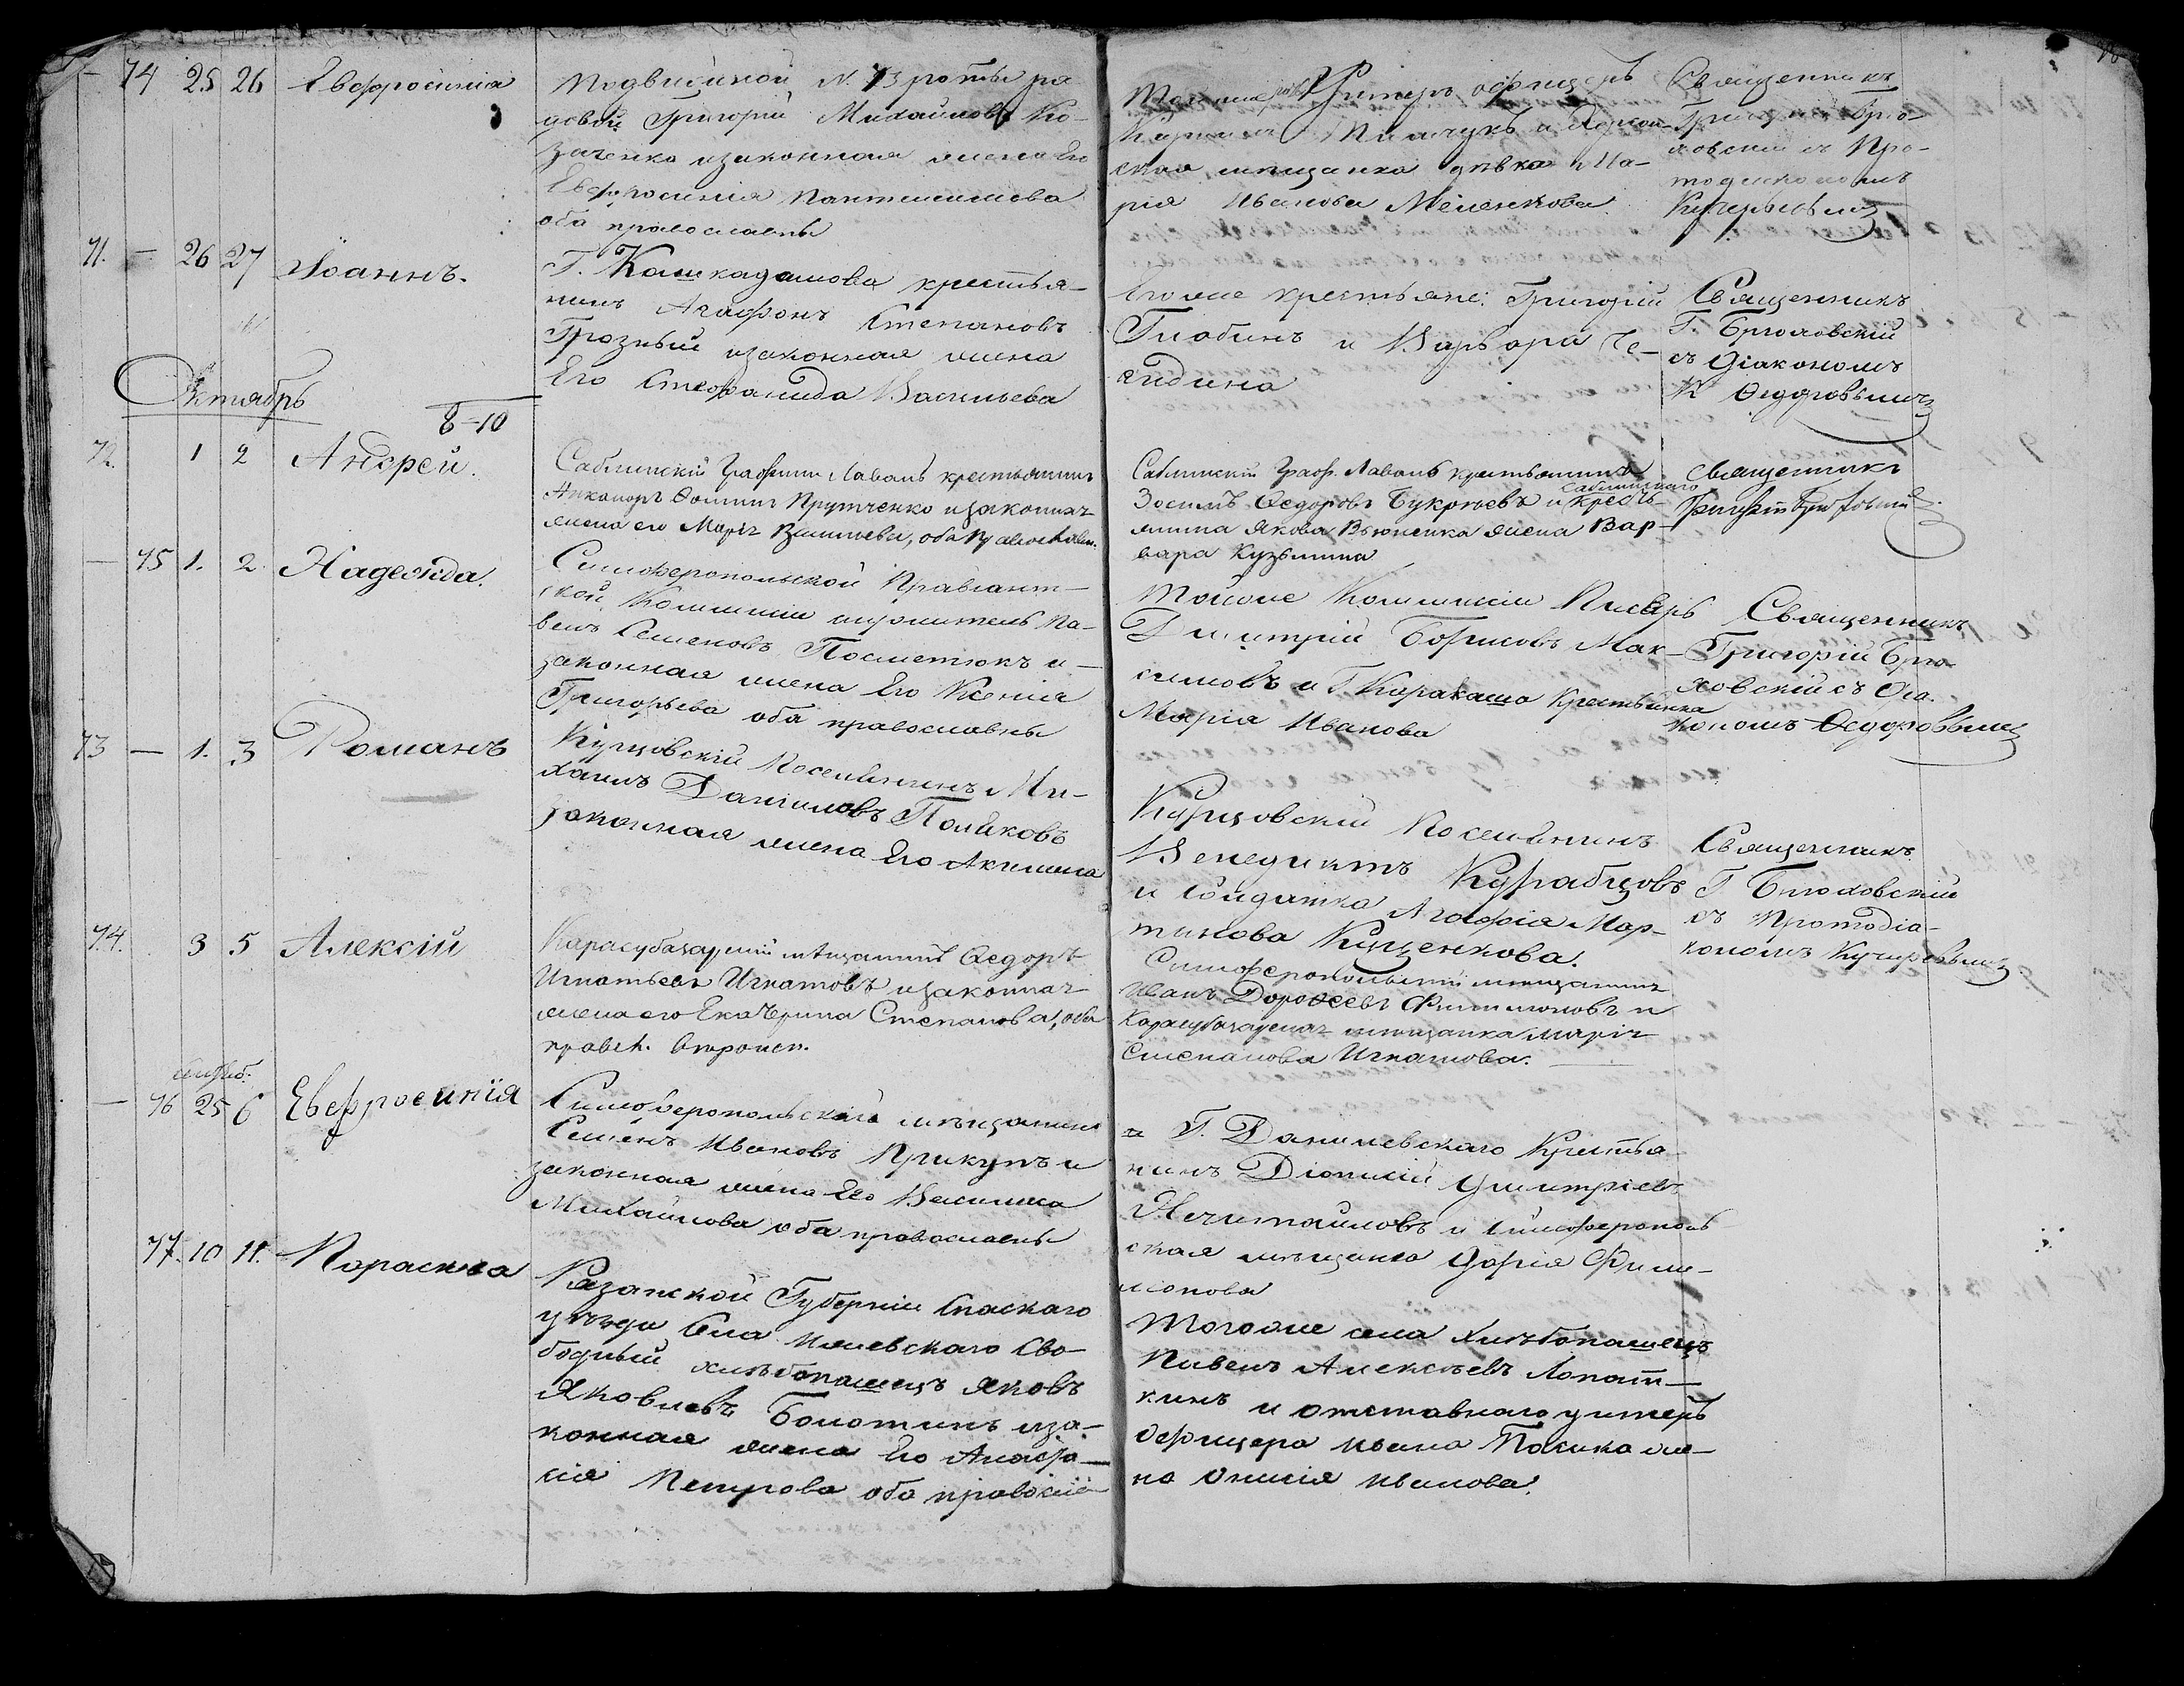 — 74 25 26 Евфросинія
Подвижной N. 73 роты ря-
довой Григорій Михайловъ Ко-
заченко изаконная жена Его
Евфросинія Пантелимова
оба православны
Тойже Унтеръ офицеръ
мѣщанка дѣвка Ма-
рія Иванова Меленкова
Священникъ
Григорій Брю-
ховскій съ Про-
тодіакономъ
Кучеровымъ
71. — 26 27 Іоаннъ.
Г. Кашкадамова крестья-
нинъ Агафонъ Степановъ
Грозный изаконная жена
Его Стефанида Васильева
Егоже крестьяне: Григорій
Глобинъ и Варвара Че-
Священникъ
Г. Брюховскій
съ Діакономъ
К Ѳедоровымъ
Октябрь
8-10
72. 1 2 Андрей.
Саблинскій Графини Лаваль крестьянинъ
Никаноръ Ѳоминъ Прутченко изаконная
жена его Марія Васильева, оба православн.
Саблинскій Граф. Лаваль крестьянинъ
Зосимъ Ѳедоровъ Букрѣевъ и Саблинскаго кресть-
янина Якова Вьюненка жена Вар-
вара Кузьмина
Священникъ
Григорій Брюховскій
— 75 1. 2 Надежда.
Симферопольской Правіант-
ской Коммисіи служитель Па-
велъ Семеновъ Посметюкъ и
законная жена Его Ксенія
Григорьева оба православны
Тойже Коммисіи Писарь
Димитрій Борисовъ Мак-
симовъ и Г. Каракаша Крестьянка
Марія Иванова
Священникъ
Григорій Брю-
ховскій съ Діа-
кономъ Ѳедоровымъ
73 — 1. 3 Романъ
Курцовскій Поселянинъ Ми-
хаилъ Даниловъ Поляковъ
законная жена Его Акилина
Курцовскій Поселянинъ
Венедиктъ Курабцовъ
и Солдатка Агафія Мар-
тинова Кущенкова.
Священникъ
Г Брюховскій
съ Протодіа-
кономъ Кучеровымъ
74. 3 5 Алексій
Карасубазарскій мѣщанинъ Ѳедоръ
Игнатьевъ Игнатовъ изаконная
жена его Екатерина Степанова, оба
правсл. вѣроисп.
Симферопольскій мѣщанинъ
Иванъ Дороѳеевъ Филимоновъ и
Карасубазарская мѣщанка Марія
Степанова Игнатова.
сентяб.
— 76 25 6 Евфросинія
Симферопольскій мѣщанинъ
Семенъ Ивановъ Прикупъ и
законная жена Его Василиса
Михайлова оба православны
Г. Данилевскаго Крестья-
нинъ Діонисій Димитріевъ
Нечитайловъ и Симферополь-
ская мѣщанка Дарія Фили-
монова
77. 10 11. Параскева
Казанской Губерніи Спаскаго
уѣзда Села Сво-
бодный хлѣбопашецъ Яковъ
Яковлевъ Болотинъ иза-
конная жена Его Анафа-
сія Петрова оба правосла
Тогоже села хлѣбопашецъ
Павелъ Алексѣевъ Лопат-
кинъ и отставнаго унтеръ
офицера Ивана Толика же-
на Онисія Иванова.